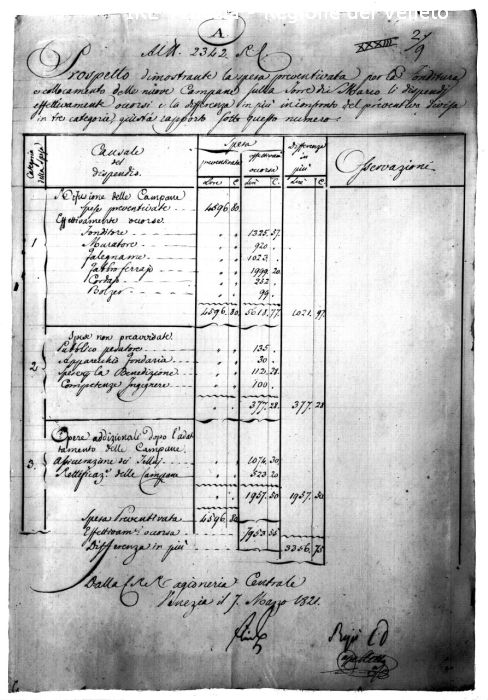 Regione del Veneto
A
N. 2342. R.
XXXIII
2/9
Prospetto dimostrante la spesa preventivata per la fonditura
e collocamento delle nuove Campane sulla Torre di S. Marco li dispendj
effettivamente occorsi e la differenza in più in confronto del preventivo, divisa
in tre categorie, giusta rapporto sotto questo numero.
Categoria della Spesa
Causale del dispendio
Spesa
preventivata
effettivam. occorsa
Differenza in più
Osservazioni
Lire C. Lire C. Lire C.
1
Rifusione delle Campane
Spese preventivate 4596. 80.
Effettivamente occorse.
Fonditore 1325. 57.
Muratore 920.
Falegname 1023.
Fabbro ferrajo 1999. 20.
Cordajo 252.
Bolzer 99.
4596. 80. 5618. 77. 1021. 97.
2
Spese non preavvisate
Pubblico pesatore 135.
Apparecchio fondaria 30.
Spese p. la Benedizione 112. 28.
Competenze Ingegnere 100.
377. 28. 377. 28
3.
Opere addizionali dopo l'adat-
tamento delle Campane.
Assicurazione dei 1074. 30
Rettificaz. delle Campane 523. 20
1957. 50 1957. 50
Spesa Preventivata 4596. 80
Effettivam. occorsa 7953. 55
Differenza in più 3356. 75
Dalla I. R. Ragioneria Centrale
Venezia il 7. Marzo 1821.